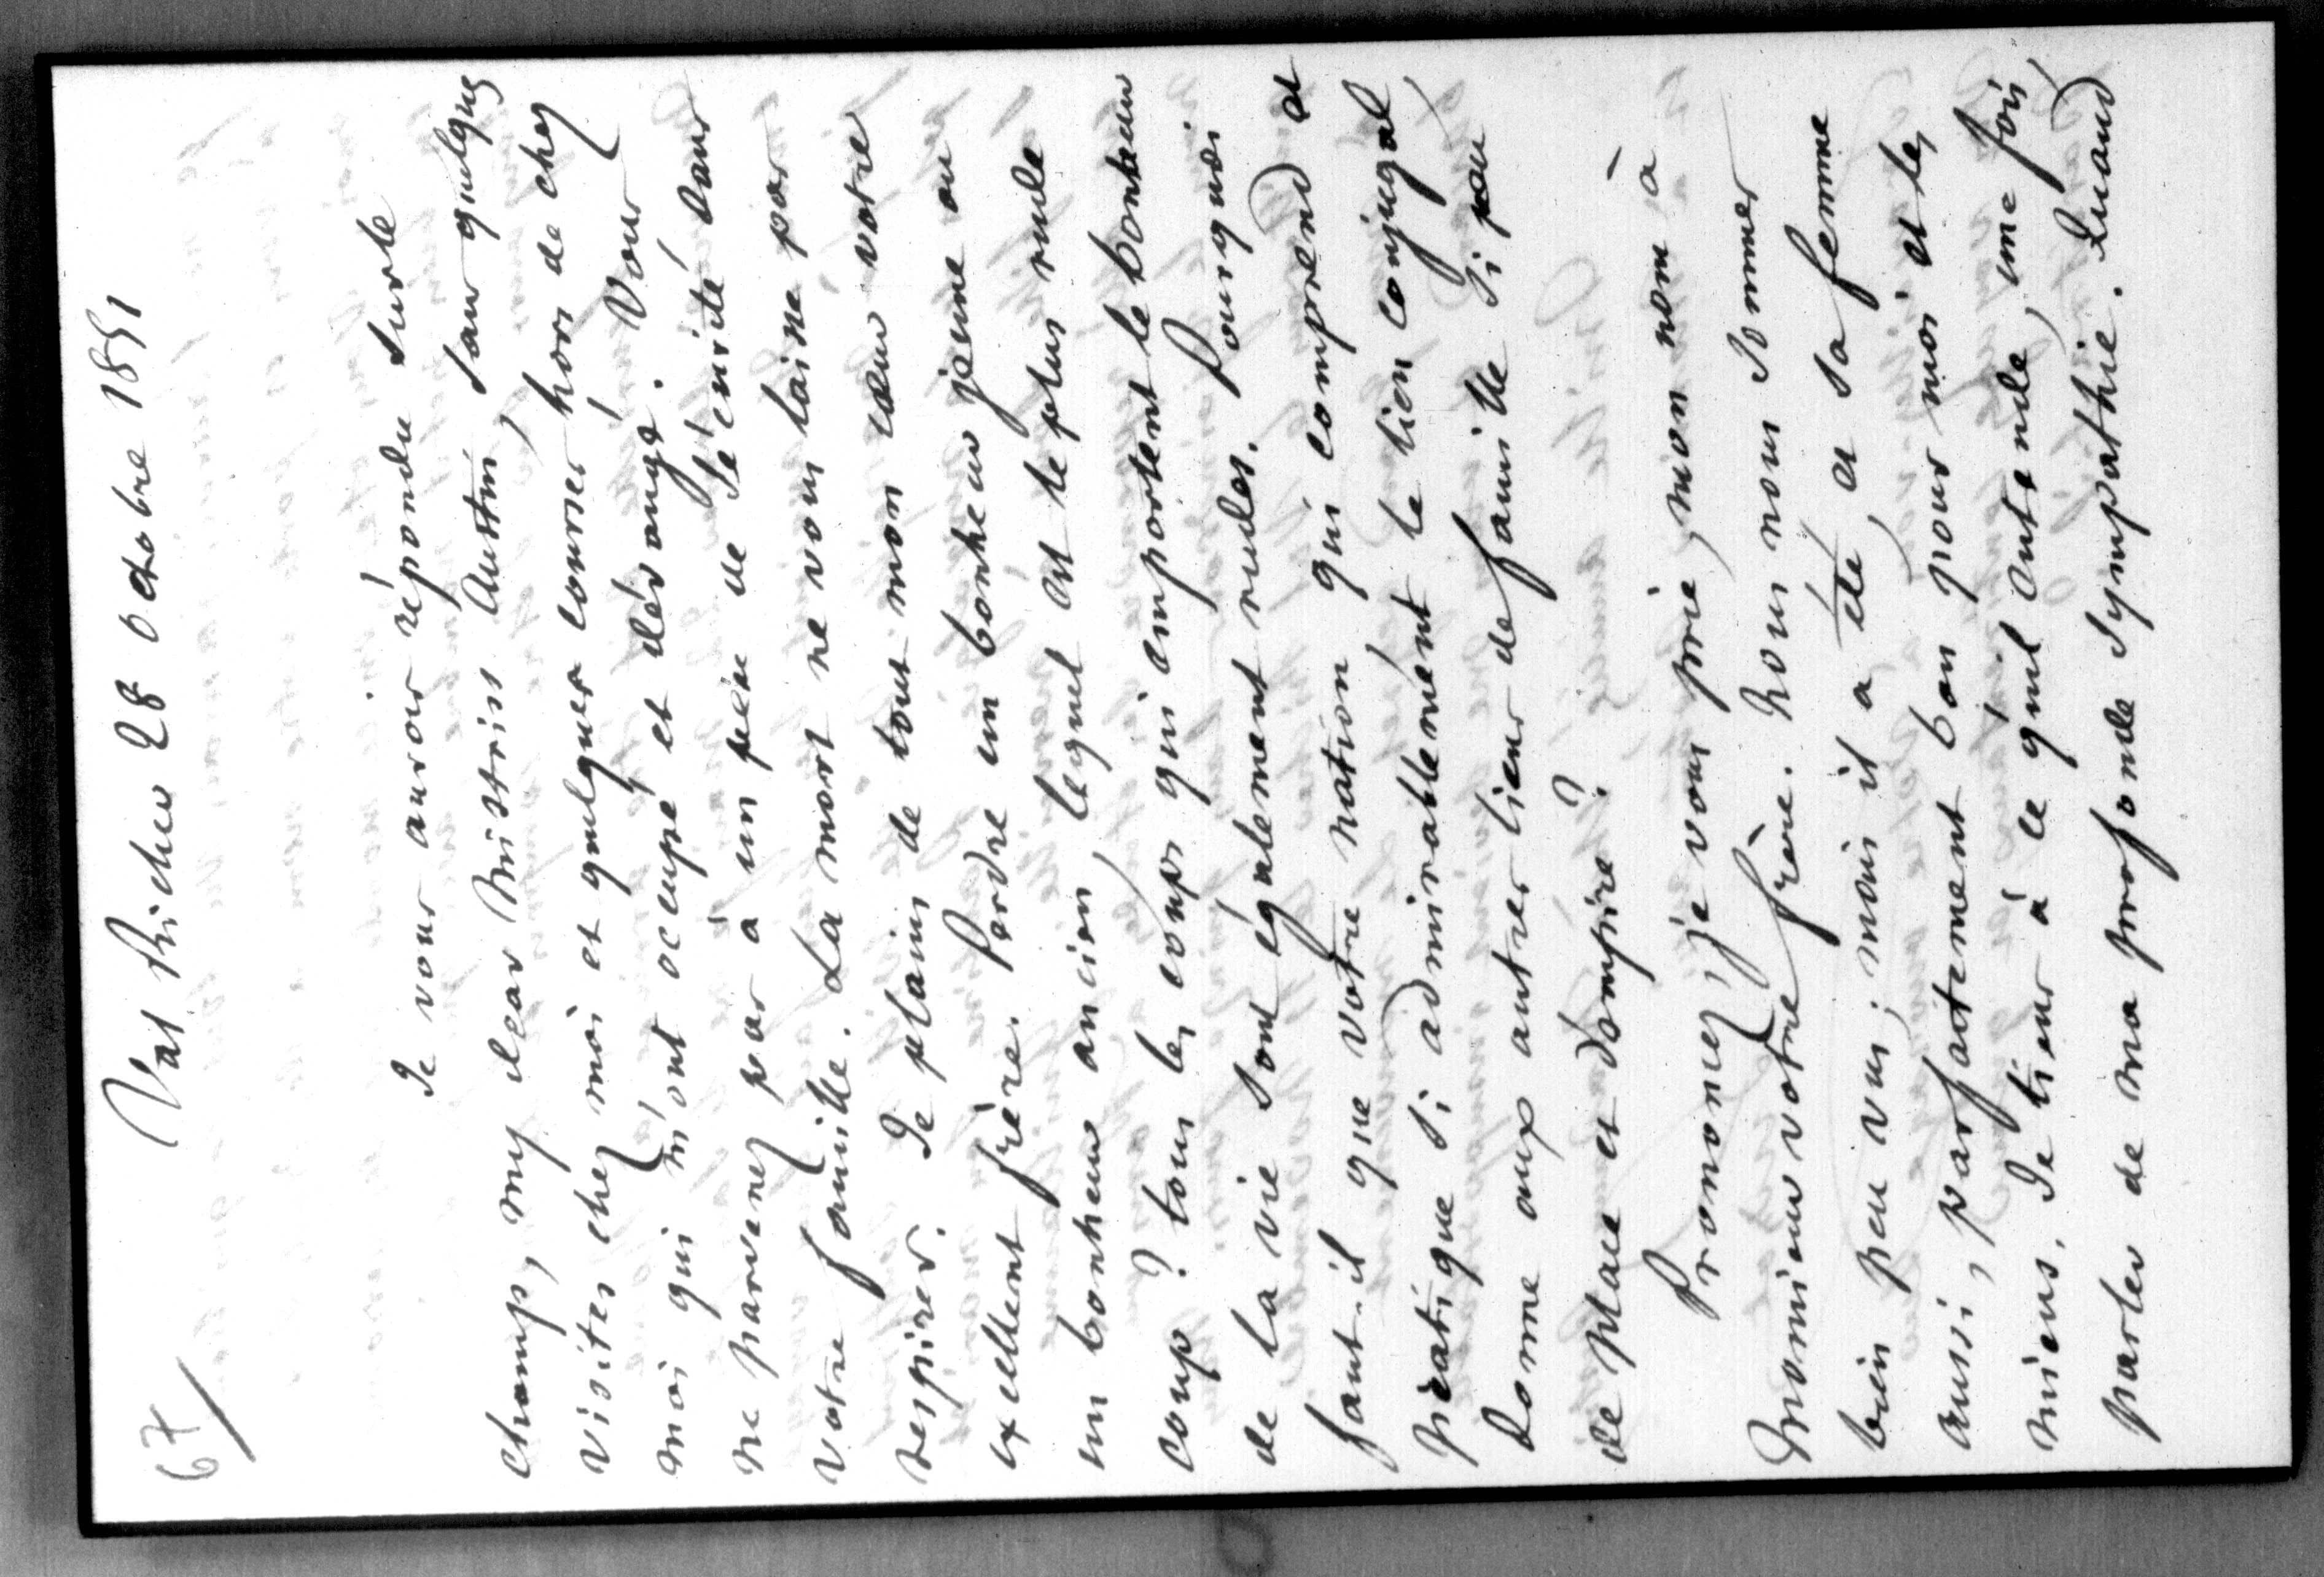 67
Val Richer 28 octobre 1851
Je vous aurois répondu sur le
champ, my dear Mistriss Austin, sans quelques
visites chez moi et quelques courses hors de chez
moi qui m'ont occupé et dérangé. Vous
ne parvenez pas à un peu de sécurité dans
votre famille. La mort ne vous laisse pas
respirer. Je plains de tout mon cœur votre
excellent frère. Perdre un bonheur jeune ou
un bonheur ancien, lequel est le plus rude
coup ? tous les coups qui emportent le bonheur
de la vie sont également rudes. Pourquoi
faut-il que votre nation qui comprend et
pratique si admirablement le lien conjugal,
donne aux autres liens de famille si peu
de place et d'empire ?
Prononcez, je vous prie, mon nom à
Monsieur votre frère. Nous nous sommes
bien peu vus ; mais il a été, et sa femme
aussi, parfaitement bon pour moi et les
miens. Je tiens à ce qu'il entende, une fois,
parler de ma profonde sympathie. Quand